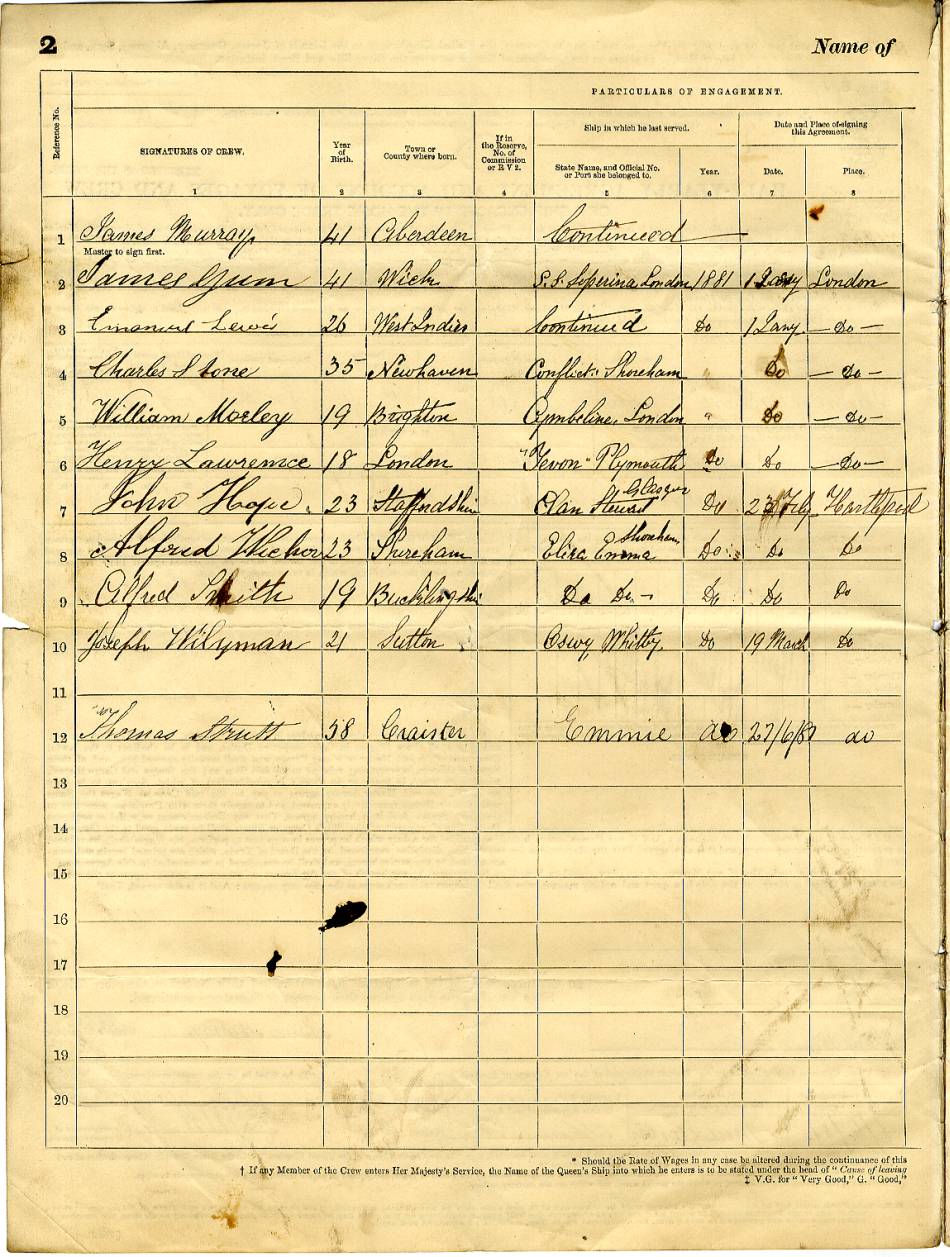 2 Name of
PARTICULARS OF ENGAGEMENT.
Reference No.
SIGNATURES OF CREW.
Year of Birth.
Town or County where born.
If in the Reserve, No. of Commission or R V 2.
Ship in which he last served.
State Name, and Official No. or Port she belonged to.
Year.
Date and Place of signing this Agreement.
Date.
Place.
1 2 3 4 5 6 7 8
1 James Murray 41 Aberdeen Continued
Master to sign first.
2 James Gunn 41 Wick S.S. London 1881 1 London
3 Emanuel Lewis 26 West Indies Continued Do 1 Jany — Do —
4 Charles Stone 35 Newhaven Conflict Shoreham " Do — Do —
5 William Morley 19 Brighton Cymbeline, London " Do — Do —
6 Henry Lawrence 18 London Plymouth Do Do — Do —
7 John 23 Staffordshire Clan Stewart Glasgow Do 23 Feb Hartlepool
8 Alfred 23 Shoreham Eliza Emma Shoreham Do Do Do
9 Alfred Smith 19 Do Do - Do Do Do
10 Joseph Wilyman 21 Sutton Oswy, Whitby Do 19 March Do
11
12 Thomas Strutt 58 Craister Emmie do 27/6/81 do
13
14
15
16
17
18
19
20
* Should the Rate of Wages in any case be altered during the continuance of this
† If any Member of the Crew enters Her Majesty's Service, the Name of the Queen's Ship into which he enters is to be stated under the head of "Cause of leaving
‡ V.G. for "Very Good," G. "Good,"